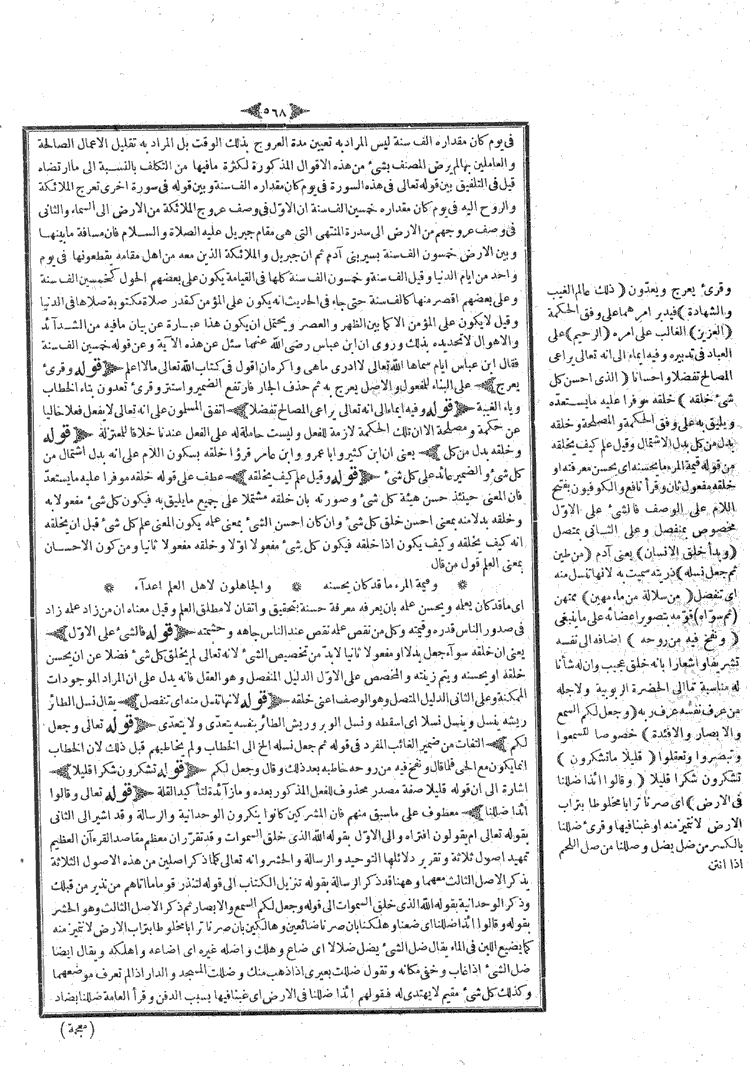 ٥٦٨
فى يوم كان مقداره الف سنة ليس المراد به تعيين مدة العروج بذلك الوقت بل المراد به تقليل الاعمال الصالحة
والعاملين بها لم يرض المصنف بشئ من هذه الاقوال المذكورة لكثرة مافيها من التكلف بالنسبة الى ما ارتضاه
قيل فى التلفيق بين قوله تعالى فى هذه السورة فى يوم كان مقداره الف سنة وبين قوله فى سورة اخرى تعرج الملائكة
والروح اليه فى يوم كان مقداره خمسين الف سنة ان الاول فى وصف عروج الملائكة من الارض الى السماء والثانى
فى وصف عروجهم من الارض الى سدرة المنتهى التى هى مقام جبريل عليه الصلاة والسلام فان مسافة ما بينها
وبين الارض خمسون الف سنة بسير بنى آدم ثم ان جبريل والملائكة الذين معه من اهل مقامه يقطعونها فى يوم
واحد من ايام الدنيا وقيل الف سنة وخمسون الف سنة كلها فى القيامة يكون على بعضهم الحول كخمسين الف سنة
وعلى بعضهم اقصر منها كالف سنة حتى جاء فى الحديث انه يكون على المؤمن كقدر صلاة مكتوبة صلاها فى الدنيا
وقيل لا يكون على المؤمن الا كما بين الظهر والعصر ويحتمل ان يكون هذا عبارة عن بيان مافيه من الشدآئد
والاهوال لا تحديده بذلك وروى ان ابن عباس رضى الله عنهما سئل عن هذه الآية وعن قوله خمسين الف سنة
فقال ابن عباس ايام سماها الله تعالى لا ادرى ماهى واكره ان اقول فى كتاب الله تعالى مالا اعلم ﴿ قوله وقرئ
يعرج ﴾ على البناء للمفعول والاصل يعرج به ثم حذف الجار فارتفع الضمير واستتر وقرئ تعدون بتاء الخطاب
وياء الغيبة ﴿ قوله وفيه ايماء الى انه تعالى يراعى المصالح تفضلا ﴾ اتفق المسلمون على انه تعالى لا يفعل فعلا خاليا
عن حكمة ومصلحة الا ان تلك الحكمة لازمة للفعل وليست حاملة له على الفعل عندنا خلافا للمعتزلة ﴿ قوله
وخلقه بدل من كل ﴾ يعنى ان ابن كثير وابا عمرو وابن عامر قرؤا خلقه بسكون اللام على انه بدل اشتمال من
كل شئ والضمير عائد على كل شئ ﴿ قوله وقيل علم كيف يخلقه ﴾ عطف على قوله خلقه موفرا عليه ما يستعد
فان المعنى حينئذ حسن هيئة كل شئ وصورته بان خلقه مشتملا على جميع ما يليق به فيكون كل شئ مفعولا به
وخلقه بدلا منه بمعنى احسن خلق كل شئ وان كان احسن الشئ بمعنى علمه يكون المعنى علم كل شئ قبل ان يخلقه
انه كيف يخلقه وكيف يكون اذا خلقه فيكون كل شئ مفعولا اولا وخلقه مفعولا ثانيا ومن كون الاحسان
بمعنى العلم قول من قال
وقيمة المرء ما قد كان يحسنه * والجاهلون لاهل العلم اعدآء *
اى ما قد كان يعلمه ويحسن عمله بان يعرفه معرفة حسنة بتحقيق واتقان لا مطلق العلم وقيل معناه ان من زاد عمله زاد
فى صدور الناس قدره وقيمته وكل من نقص عمله نقص عند الناس جاهه وحشمته ﴿ قوله فالشئ على الاول ﴾
يعنى ان خلقه سوآء جعل بدلا او مفعولا ثانيا لا بد من تخصيص الشئ لانه تعالى لم يخلق كل شئ فضلا عن ان يحسن
خلقه او يحسنه ويتم زينته والمخصص على الاول الدليل المنفصل وهو العقل فانه يدل على ان المراد الموجودات
الممكنة وعلى الثانى الدليل المتصل وهو الوصف اعنى خلقه ﴿ قوله لانها تنسل منه اى تنفصل ﴾ يقال نسل الطائر
ريشه ينسل وينسل نسلا اى اسقطه ونسل الوبر وريش الطائر بنفسه يتعدى ولا يتعدى ﴿ قوله تعالى وجعل
لكم ﴾ التفات من ضمير الغائب المفرد فى قوله ثم جعل نسله الخ الى الخطاب ولم يخاطبهم قبل ذلك لان الخطاب
انما يكون مع الحى فلما قال ونفخ فيه من روحه خاطبه بعد ذلك وقال وجعل لكم ﴿ قوله تشكرون شكرا قليلا ﴾
اشارة الى ان قوله قليلا صفة مصدر محذوف للفعل المذكور بعده وما زآئدة لتأكيد القلة ﴿ قوله تعالى وقالوا
أئذا ضللنا ﴾ معطوف على ماسبق منهم فان المشركين كانوا ينكرون الوحدانية والرسالة وقد اشير الى الثانى
بقوله تعالى ام يقولون افتراه والى الاول بقوله الله الذى خلق السموات وقد تقرر ان معظم مقاصد القرءآن العظيم
تمهيد اصول ثلاثة وتقرير دلائلها التوحيد والرسالة والحشر وانه تعالى كلما ذكر اصلين من هذه الاصول الثلاثة
يذكر الاصل الثالث معهما وههنا قد ذكر الرسالة بقوله تنزيل الكتاب الى قوله لتنذر قوما ما اتاهم من نذير من قبلك
وذكر الوحدانية بقوله الله الذى خلق السموات الى قوله وجعل لكم السمع والابصار ثم ذكر الاصل الثالث وهو الحشر
بقوله وقالوا أئذا ضللنا اى ضعنا وهلكنا بان صرنا ضائعين وهالكين بان صرنا ترابا مخلوطا بتراب الارض لا نتميز منه
كما يضيع اللبن فى الماء يقال ضل الشئ يضل ضلالا اى ضاع وهلك واضله غيره اى اضاعه واهلكه ويقال ايضا
ضل الشئ اذا غاب وخفى مكانه وتقول ضللت بعيرى اذا ذهب منك وضللت المسجد والدار اذا لم تعرف موضعهما
وكذلك كل شئ مقيم لا يهتدى له فقولهم أئذا ضللنا فى الارض اى غبنا فيها بسبب الدفن وقرأ العامة ضللنا بضاد
( معجمة )
وقرئ يعرج ويعدون ( ذلك عالم الغيب
والشهادة ) فيدبر امرهما على وفق الحكمة
( العزيز ) الغالب على امره ( الرحيم ) على
العباد فى تدبيره وفيه ايماء الى انه تعالى يراعى
المصالح تفضلا واحسانا ( الذى احسن كل
شئ خلقه ) خلقه موفرا عليه ما يستعده
ويليق به على وفق الحكمة والمصلحة وخلقه
بدل من كل بدل الاشتمال وقيل علم كيف يخلقه
من قوله قيمة المرء ما يحسنه اى يحسن معرفته و
خلقه مفعول ثان وقرأ نافع والكوفيون بفتح
اللام على الوصف فالشئ على الاول
مخصوص بمنفصل وعلى الثانى بمتصل
( وبدأ خلق الانسان ) يعنى آدم ( من طين
ثم جعل نسله ) ذريته سميت به لانها تنسل منه
اى تنفصل ( من سلالة من ماء مهين ) ممتهن
( ثم سوّاه ) قوّمه بتصوير اعضائه على ما ينبغى
( ونفخ فيه من روحه ) اضافه الى نفسه
تشريفا واشعارا بانه خلق عجيب وان له شأنا
له مناسبة تما الى الحضرة الربوبية ولاجله
من عرف نفسه عرف ربه ( وجعل لكم السمع
والابصار والافئدة ) خصوصا لتسمعوا
وتبصروا وتعقلوا ( قليلا ما تشكرون )
تشكرون شكرا قليلا ( وقالوا أئذا ضللنا
فى الارض ) اى صرنا ترابا مخلوطا بتراب
الارض لا نتميز منه او غبنا فيها وقرئ ضللنا
بالكسر من ضل يضل وصللنا من صل اللحم
اذا انتن